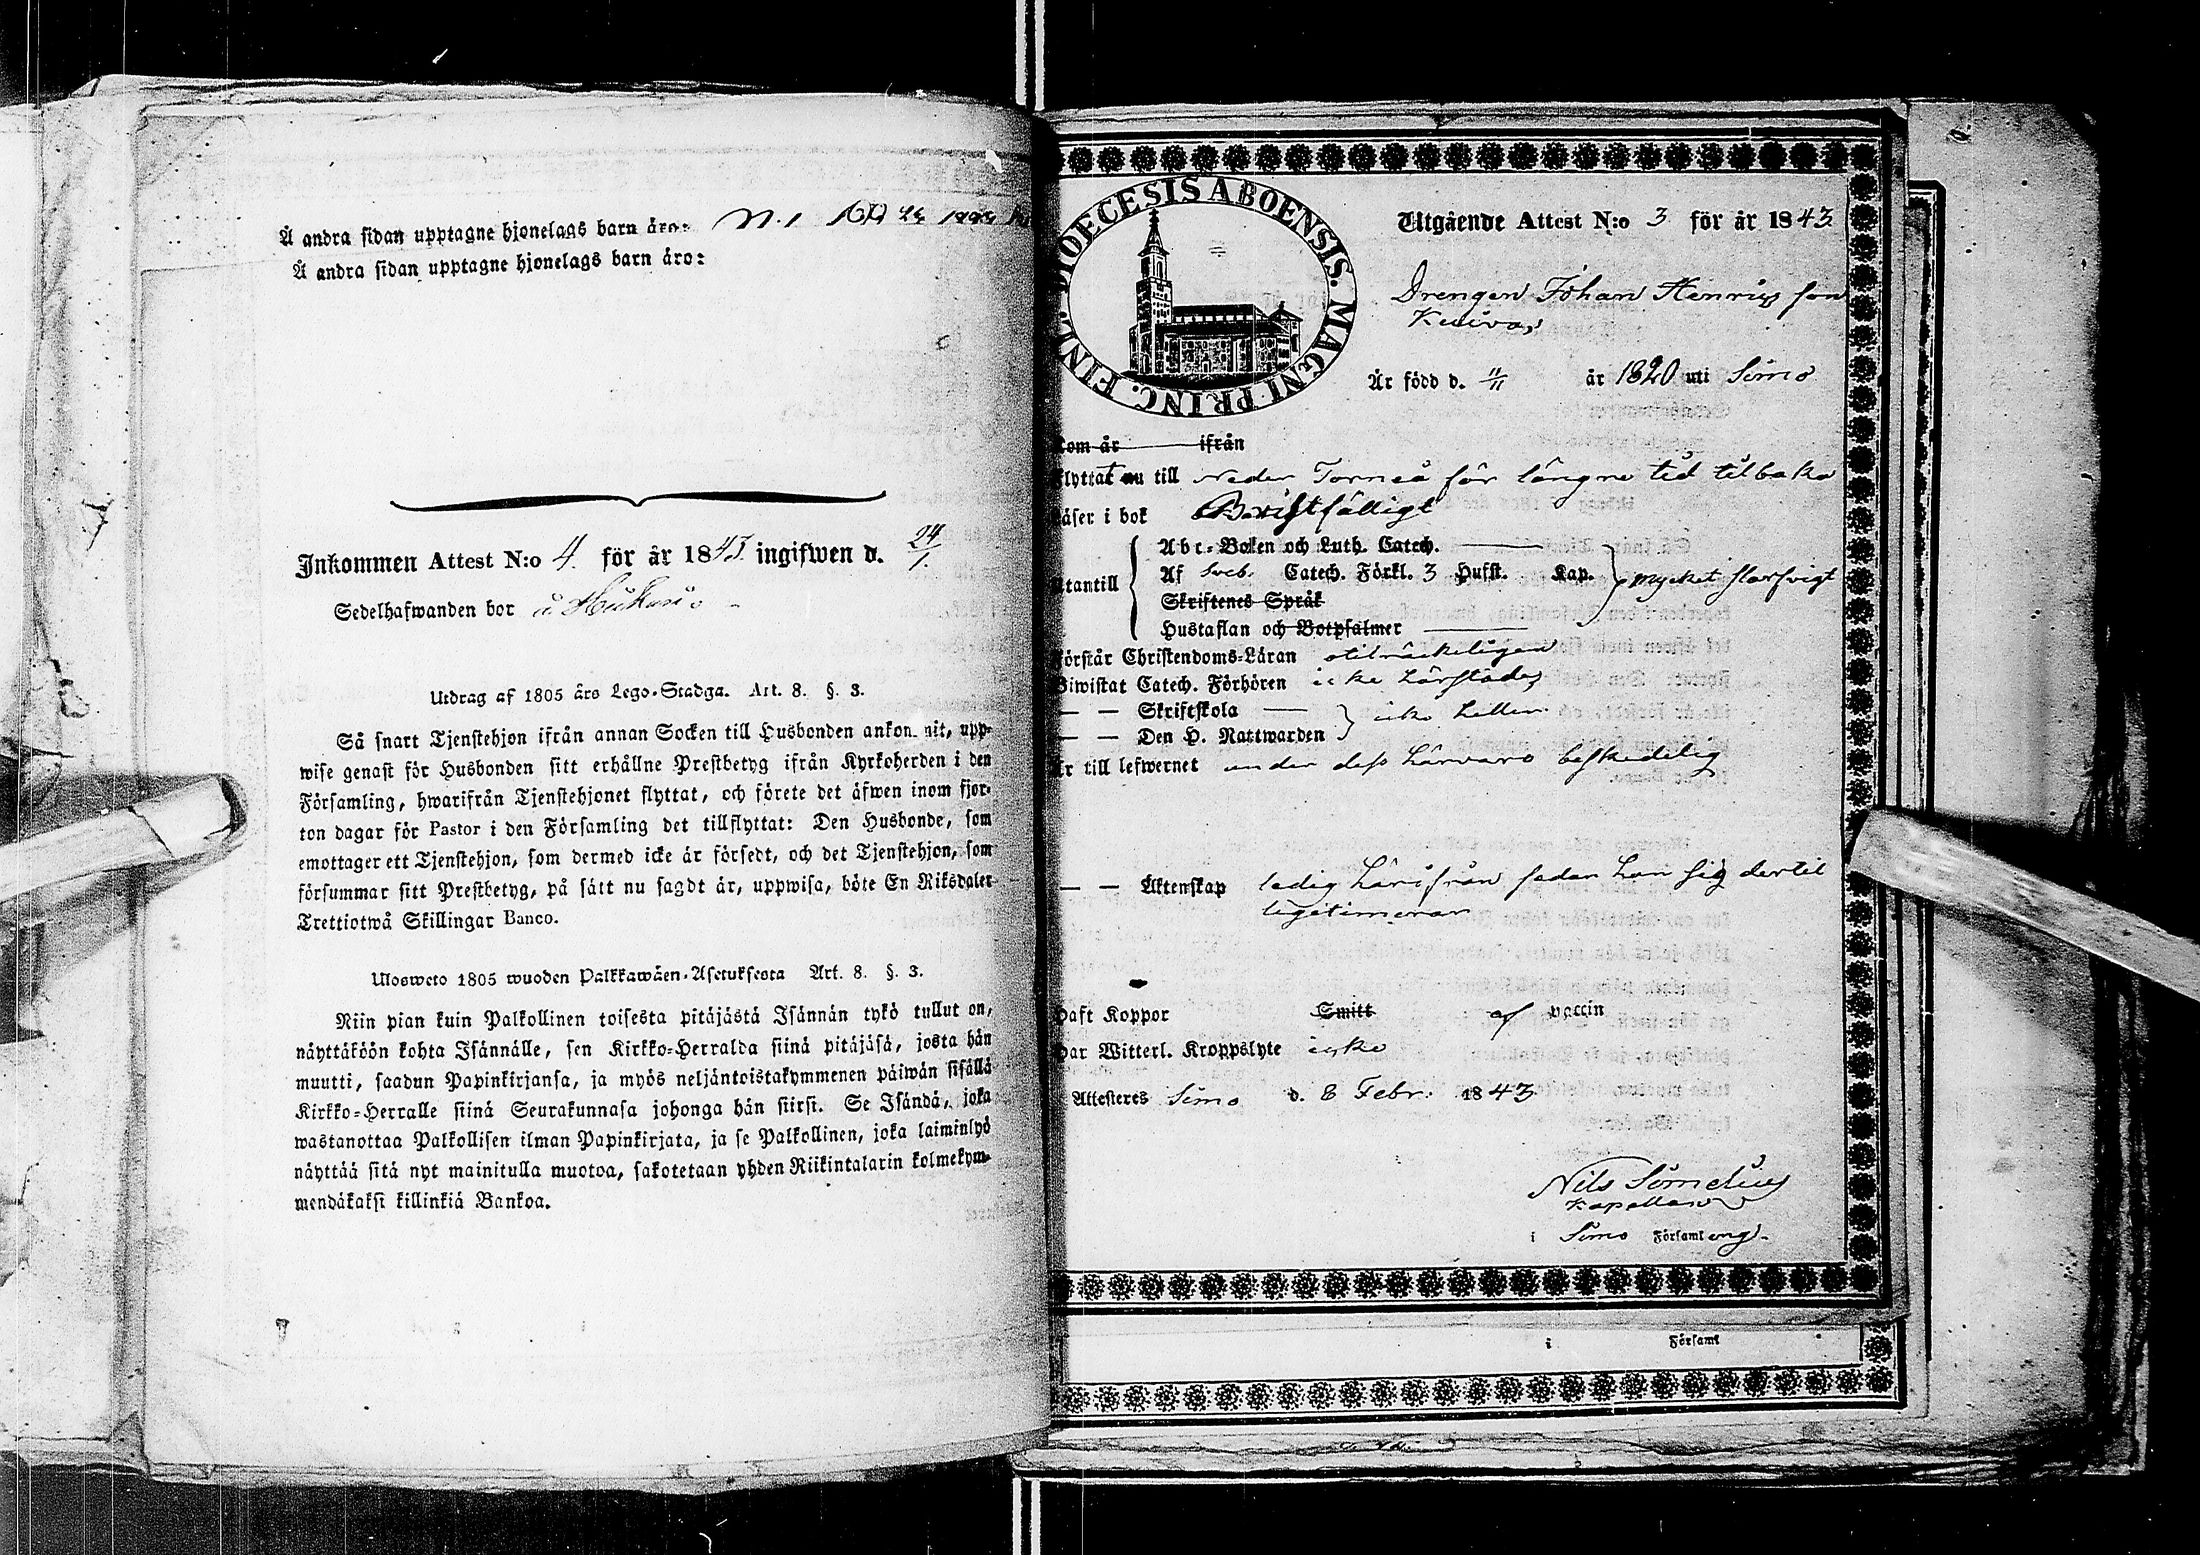 Å andra sidan upptagne hjonelags barn äro: N. 1
Å andra sidan upptagne hjonelags barn äro:
Inkommen Attest N:o 4. för år 1843. ingifwen d. 24/1.
Sedelhafwanden bor å
Utdrag af 1805 års Lego-Stadga. Art. 8. §. 3.
Så snart Tjenstehjon ifrån annan Socken till Husbonden ankommit, upp-
wise genast för Husbonden sitt erhållne Prestbetyg ifrån Kyrkoherden i den
Församling, hwarifrån Tjenstehjonet flyttat, och förete det äfwen inom fjor-
ton dagar för Pastor i den Församling det tillflyttat: Den Husbonde, som
emottager ett Tjenstehjon, som dermed icke är försedt, och det Tjenstehjon, som
försummar sitt Prestbetyg, på sätt nu sagdt är, uppwisa, böte En Riksdaler
Trettiotwå Skillingar Banco.
Ulosweto 1805 wuoden Palkkawäen-Asetuksesta Art. 8. §. 3.
Niin pian kuin Palkollinen toisesta pitäjästä Isännän tykö tullut on,
näyttäköön kohta Isännälle, sen Kirkko-Herralda siinä pitäjäsä, josta hän
muutti, saadun Papinkirjansa, ja myös neljäntoistakymmenen päiwän sisällä
Kirkko-Herralle siinä Seurakunnasa johonga hän siirsi. Se Isändä, joka
wastanottaa Palkollisen ilman Papinkirjata, ja se Palkollinen, joka laiminlyö
näyttää sitä nyt mainitulla muotoa, sakotetaan yhden Riikintalarin kolmekym-
mendäkaksi killinkiä Bankoa.
DIOECESIS ABOENSIS. MAGNI PRINC. FINL.
Utgående Attest N:o 3 för år 1843
Drengen Johan Henricsson
Keiva,
Är född d. 11/11 år 1820 uti Simo
Kom år ifrån
Flyttat nu till Neder Torneå för längre tid tilbaka
Läser i bok Bristfälligt
Utantill Abc-Boken och Luth. Catech.
Af Sveb. Catech. Förkl. 3 Hufst. Kap. mycket slarfvigt
Skriftenes Språk
Hustaflan och Botpsalmer
Förstår Christendoms-Läran otilräckeligen
Biwistat Catech. Förhören icke härstädes
— — Skriftskola
— — Den H. Nattwarden icke heller
Är till lefwernet under dess härvaro beskedelig
— — Äktenskap ledig härifrån sedan han sig dertil
legitimerar
Haft Koppor Smitt af vaccin
Har Witterl. Kroppslyte icke
Attesteres Simo d. 8 Febr. 1843
Nils Simelius
Kapellan
i Simo Församling.
i Församl